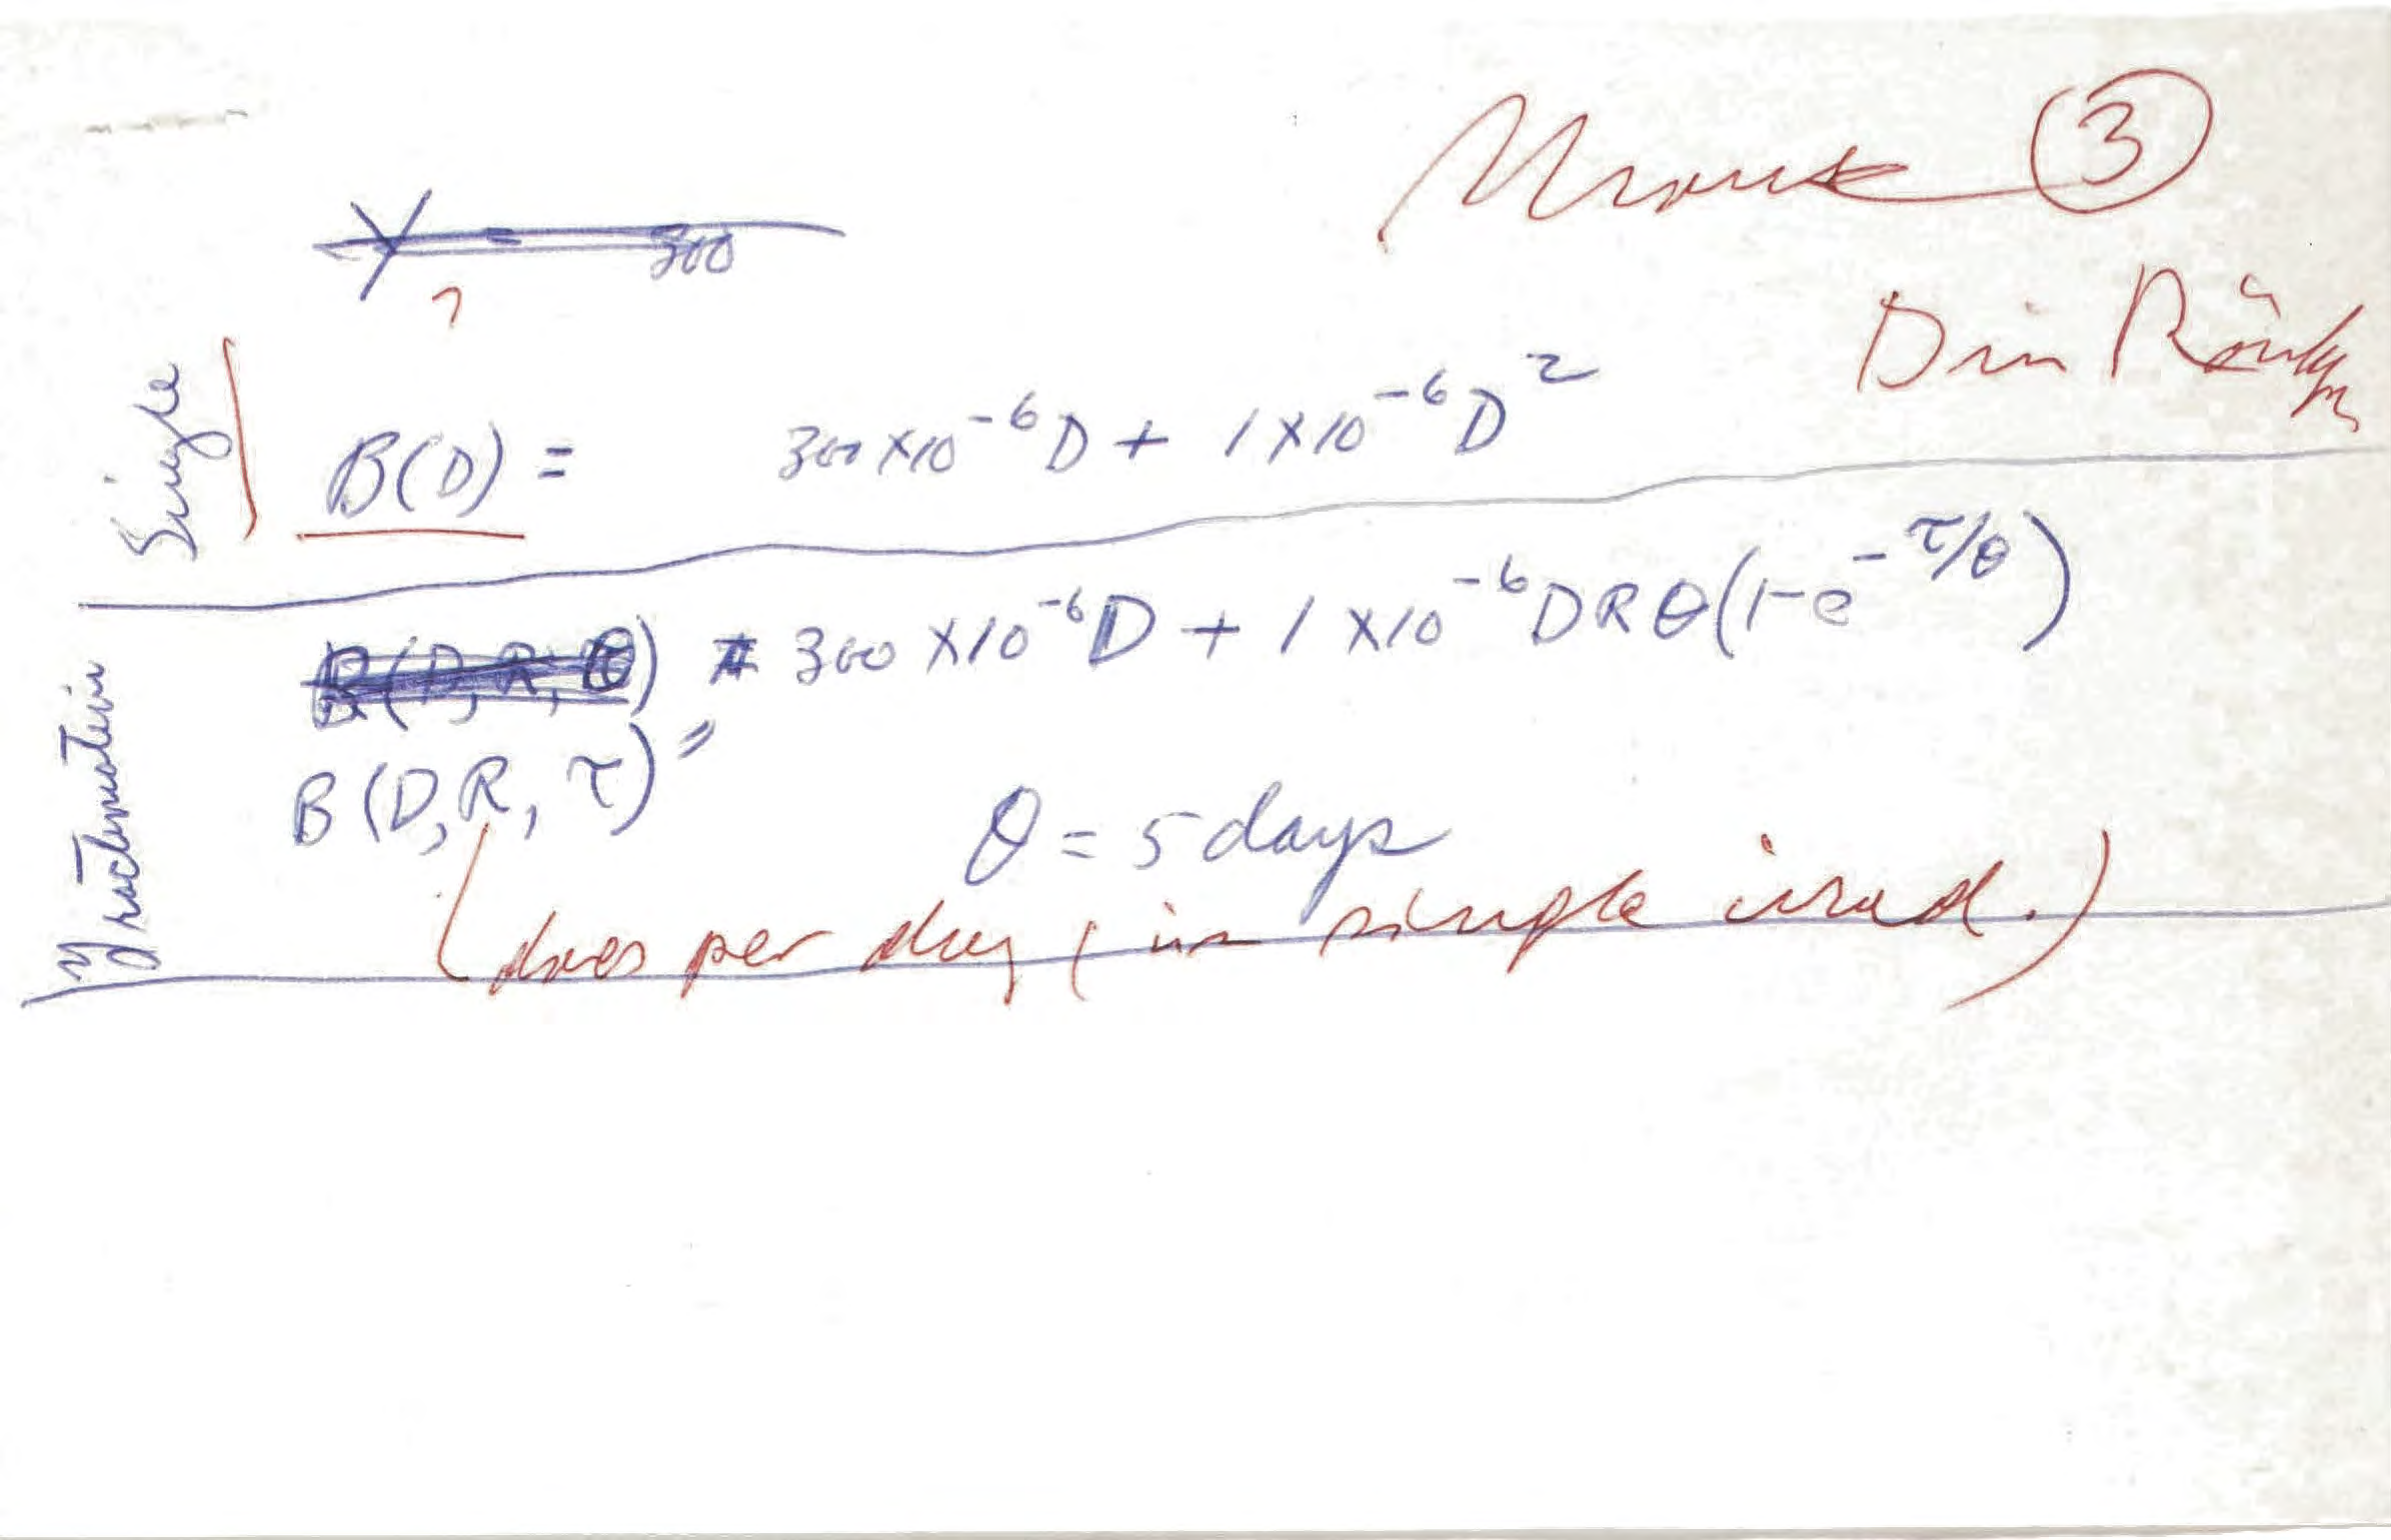 Mouse ③
Y = 300
?
D in Röntgen
Single
B(D) = 300 × 10⁻⁶ D + 1 × 10⁻⁶ D²
Fractionation
B(D, R, Θ) = 300 × 10⁻⁶ D + 1 × 10⁻⁶ D R θ (1 - e^{-τ/θ})
B(D, R, τ) =
θ = 5 days
(does per day (in single irrad.)